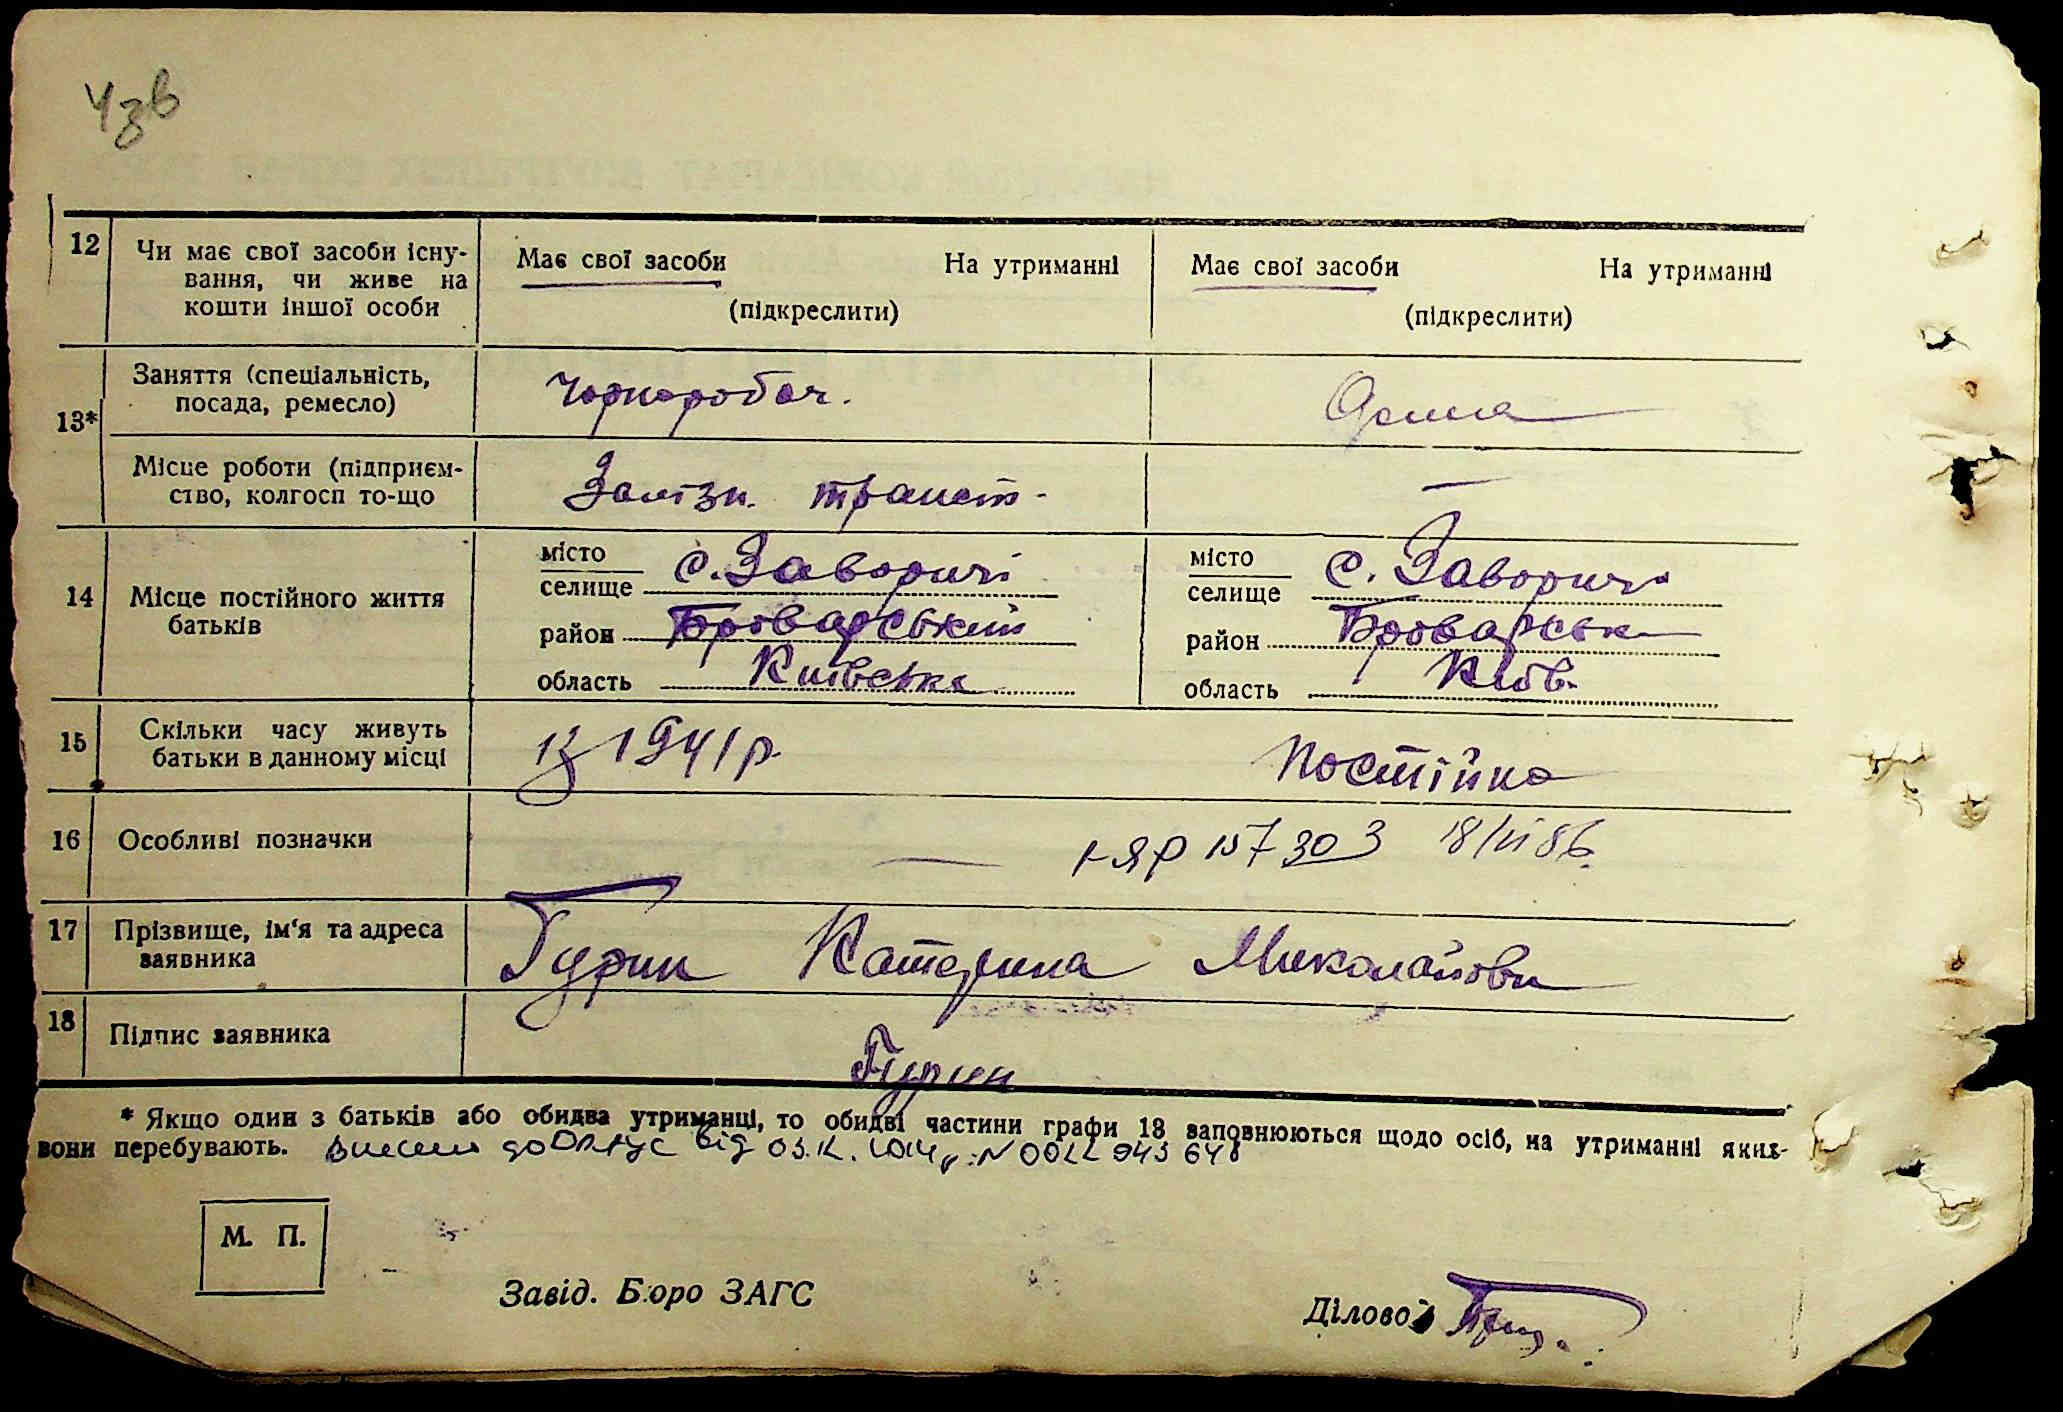 Узв
12 Чи має свої засоби існу-
вання, чи живе на
кошти іншої особи
Має свої засоби На утриманні
(підкреслити)
Має свої засоби На утриманні
(підкреслити)
13* Заняття (спеціальність,
посада, ремесло)
Чорноробоч.
Місце роботи (підприєм-
ство, колгосп то-що
Залізн. трансп. —
14 Місце постійного життя
батьків
місто
селище с. Заворичі
район Броварський
область Київська
місто
селище с. Заворичі
район Броварськ
область Київ.
15 Скільки часу живуть
батьки в данному місці
Із 1941 р. постійно
16 Особливі позначки
— І-ЯР 157303 18/VI 86.
17 Прізвище, ім'я та адреса
заявника
Гурин Катерина Миколаївн
18 Підпис заявника
Гурин
* Якщо один з батьків або обидва утриманці, то обидві частини графи 13 заповнюються щодо осіб, на утриманні яких-
вони перебувають. внесено до ДРАЦС від 03.12.2014 р. N 0022 943 648
М. П.
Завід. Бюро ЗАГС
Діловод